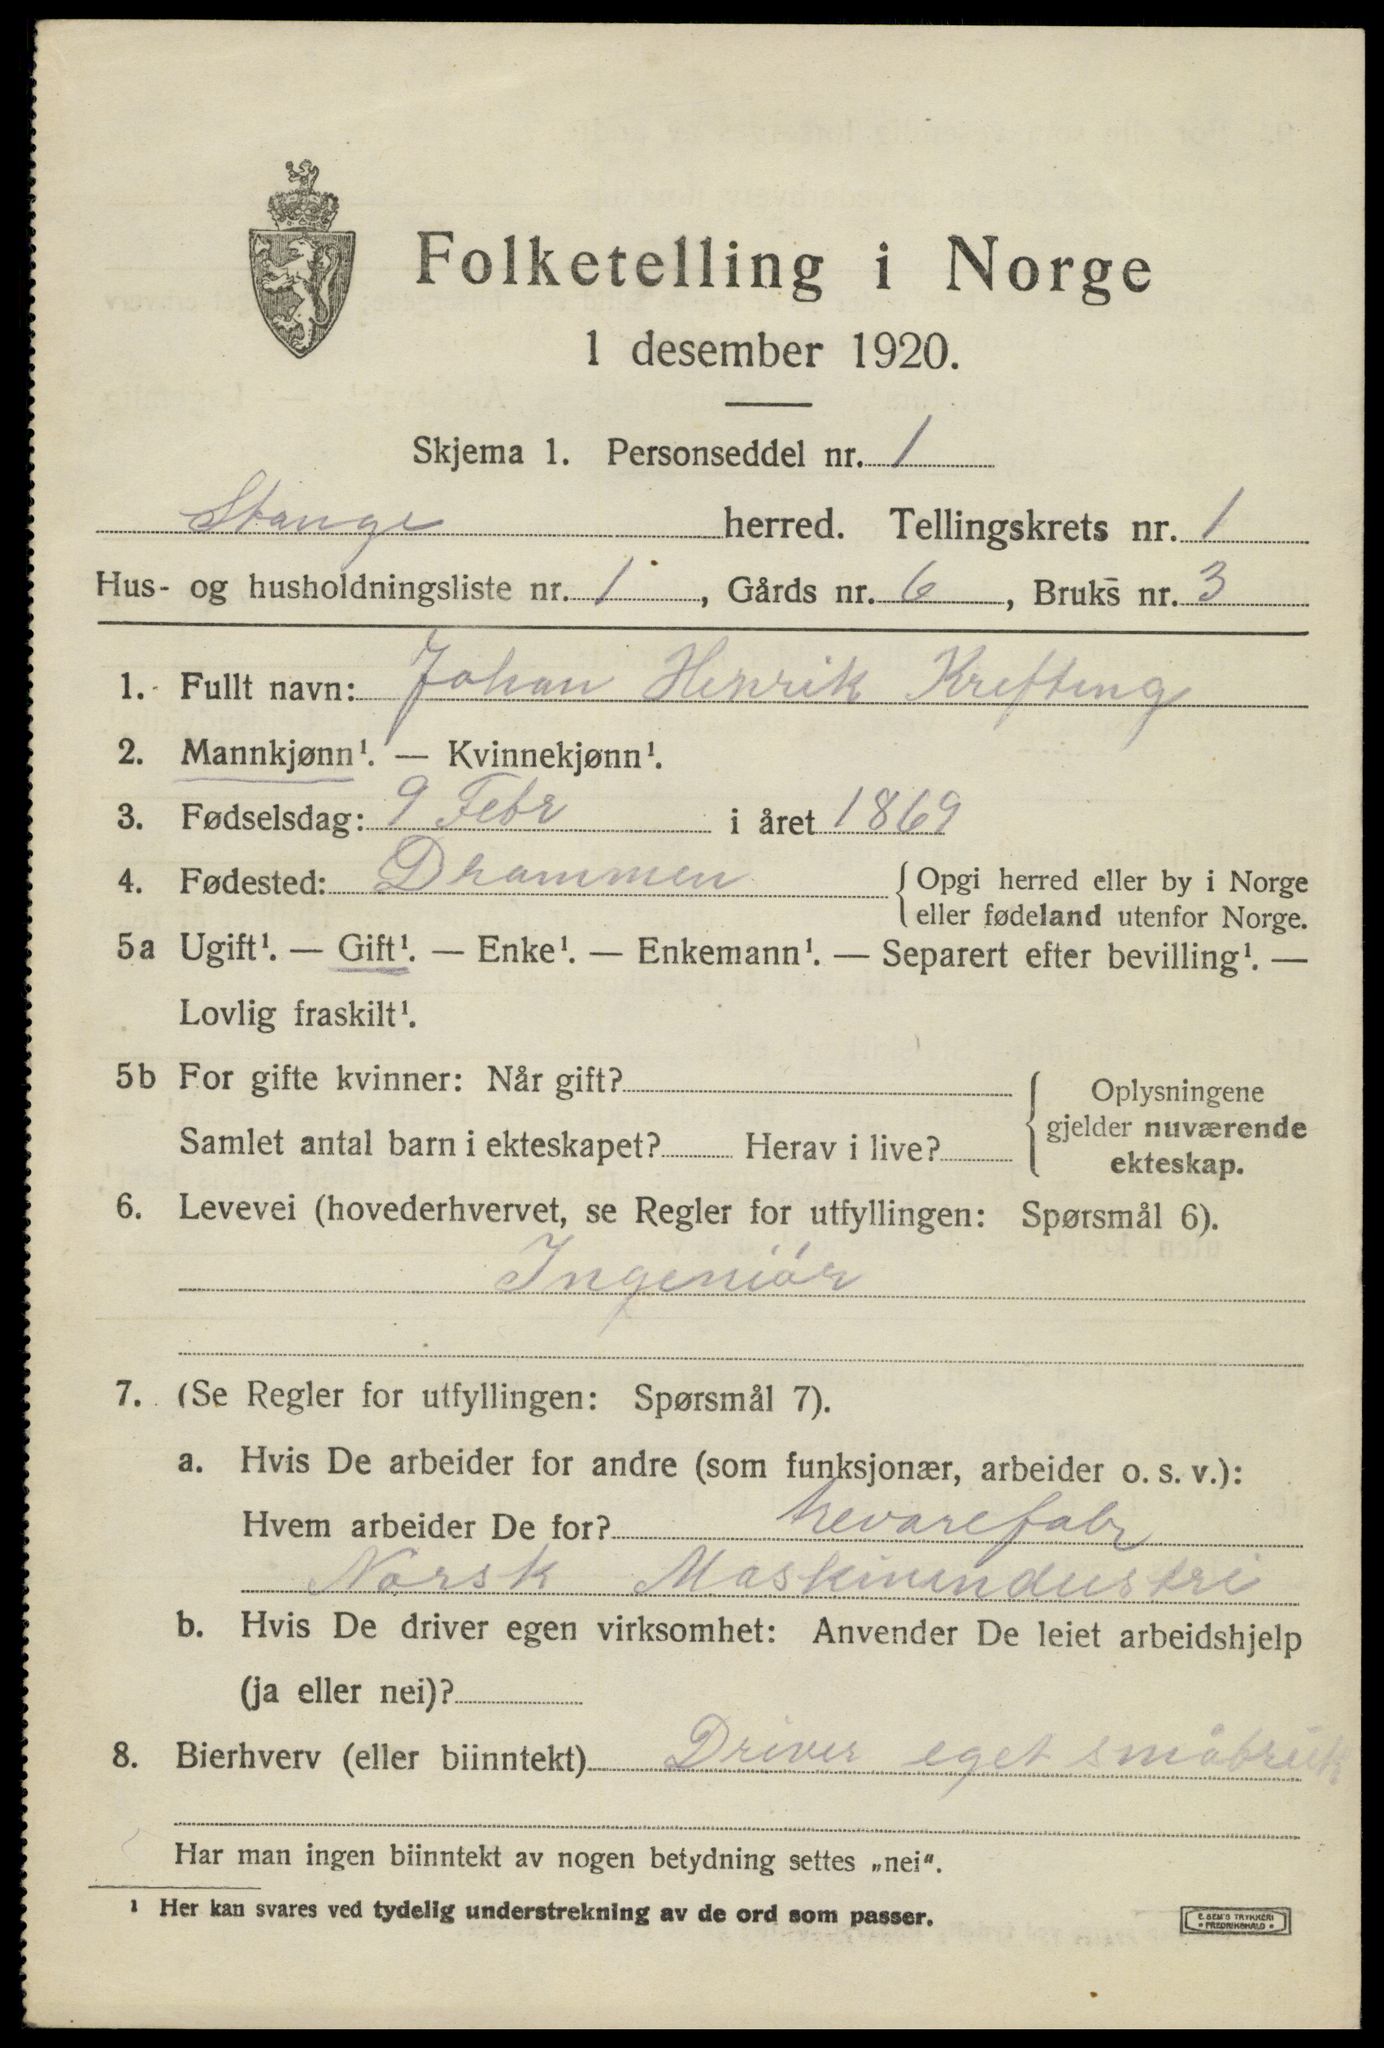 Folketelling i Norge
1 desember 1920.
Skjema 1. Personseddel nr. 1
Stange herred. Tellingskrets nr. 1
Hus- og husholdningsliste nr. 1, Gårds nr. 6, Bruks nr. 3
1. Fullt navn: Johan Henrik Krefting
2. Mannkjønn¹. — Kvinnekjønn¹.
3. Fødselsdag: 9 Febr i året 1869
4. Fødested: Drammen { Opgi herred eller by i Norge
eller fødeland utenfor Norge.
5a Ugift¹. — Gift¹. — Enke¹. — Enkemann¹. — Separert efter bevilling¹. —
Lovlig fraskilt¹.
5b For gifte kvinner: Når gift?
Samlet antal barn i ekteskapet? Herav i live?
{ Oplysningene
gjelder nuværende
ekteskap.
6. Levevei (hovederhvervet, se Regler for utfyllingen: Spørsmål 6).
Ingeniör
7. (Se Regler for utfyllingen: Spørsmål 7).
a. Hvis De arbeider for andre (som funksjonær, arbeider o. s. v.):
Hvem arbeider De for? trevarefabr
Norsk Maskinindustri
b. Hvis De driver egen virksomhet: Anvender De leiet arbeidshjelp
(ja eller nei)?
8. Bierhverv (eller biinntekt) Driver eget småbruk
Har man ingen biinntekt av nogen betydning settes „nei“.
¹ Her kan svares ved tydelig understrekning av de ord som passer.
E. SEM'S TRYKKERI
• FREDRIKSHALD •